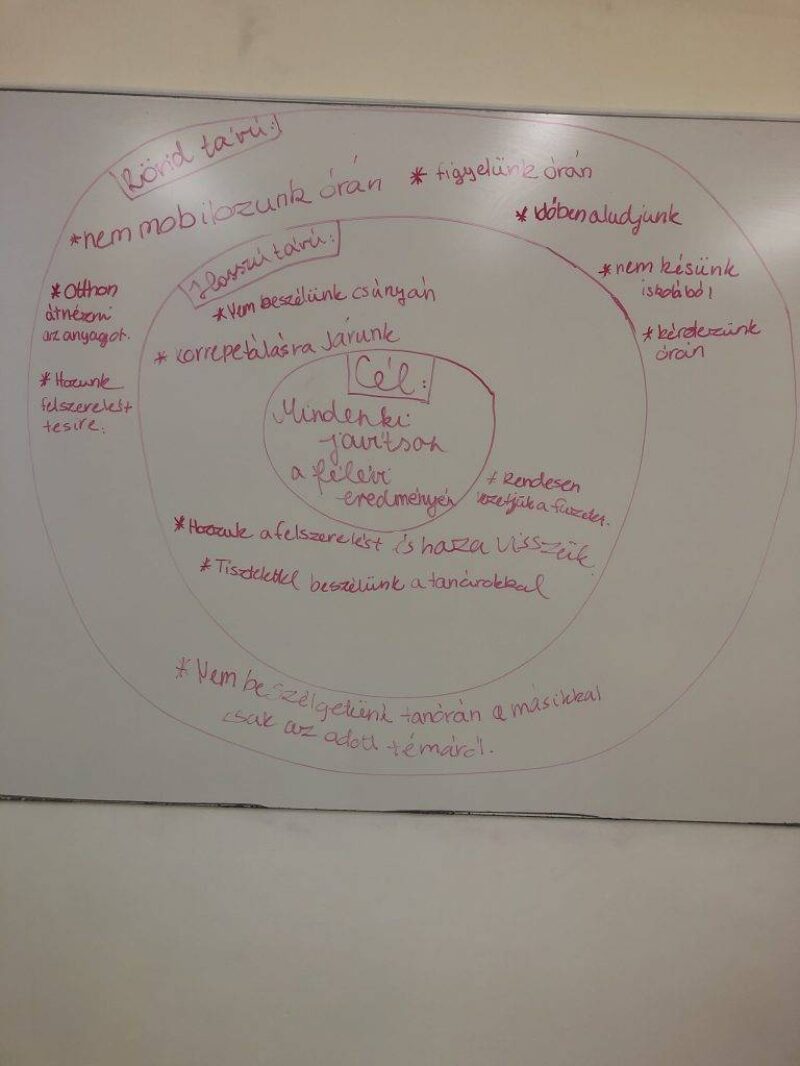 Rövid távú:
*nem mobilozunk órán
* figyelünk órán
* időben aludjunk
* nem késünk
iskolából
* kérdezünk
órán
* Otthon
átnézni
az anyagot.
* Hozunk
felszerelést
tesire.
Hosszú távú:
* Nem beszélünk csúnyán
* korrepetálásra járunk
Cél:
Mindenki
javítson
a félévi
eredményén
* Rendesen
vezetjük a füzetet.
* Hozzuk a felszerelést és haza visszük
* Tisztelettel beszélünk a tanárokkal
* Nem beszélgetünk tanórán a másikkal
csak az adott témáról.